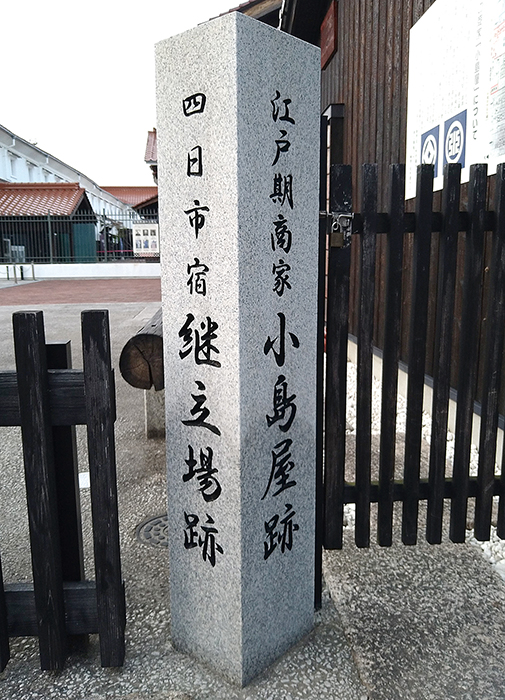 江戸期商家小島屋跡
四日市宿継立場跡